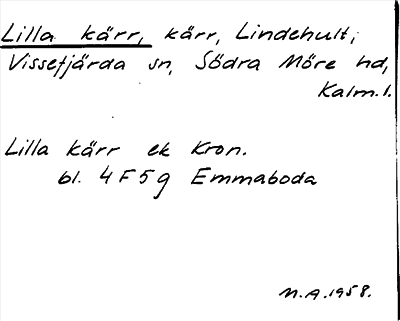 Lilla kärr, kärr, Lindehult,
Vissefjärda sn, Södra Möre hd,
Kalm.l.
Lilla kärr ek Kron.
bl. 4F5g Emmaboda
M.A.1958.